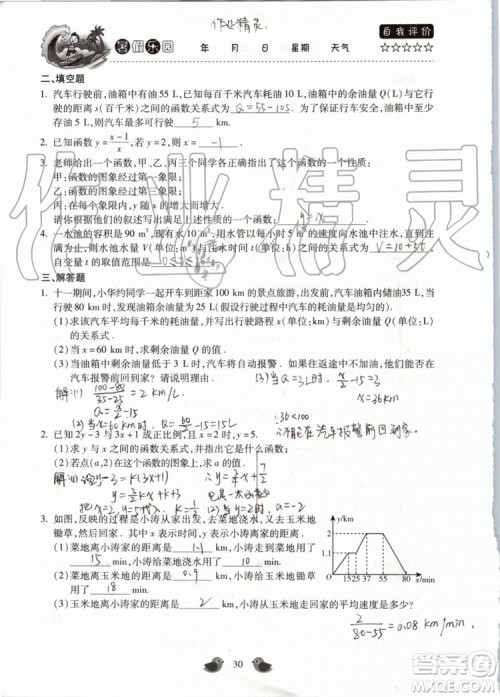 作业精灵.
暑假乐园 年 月 日 星期 天气 自我评价
☆☆☆☆☆
二、填空题
1. 汽车行驶前,油箱中存油 55 L,已知每百千米汽车耗油 10 L,油箱中的余油量
Q(L)与它行驶的距离 s(百千米)之间的函数关系式为 Q=55-10s. 为了保证行车安全,油箱中至少存油
5 L,则汽车最多可行驶 5 km.
2. 已知函数 y=x-1/x,若 y=2,则 x= -1 .
3. 老师给出一个函数,甲、乙、丙三个同学各正确指出了这个函数的一个性质:
甲:函数的图象经过第一象限;
乙:函数的图象经过第三象限;
丙:y 随 x 的增大而增大.
请你根据他们的叙述写出满足上述性质的一个函数: y=x
4. 一水池的容积是 90 m³,现有水 10 m³,用水管以每小时 5 m³ 的速度向水池中注水,直到
注满为止,则水池中蓄水量 V(单位:m³)与注水时间 t(单位:h)之间的关系式为 V=10+5t ,
自变量 t 的取值范围是 0≤t≤16
三、解答题
1. 十一期间,小华约同学一起开车到距家 100 km 的景点旅游,出发前,汽车油箱内储油35 L,当
行驶 80 km 时,发现油箱余油量为 25 L(假设行驶过程中汽车的耗油量是均匀的).
(1)求该汽车平均每千米的耗油量,并写出行驶路程 x(单位:km)与剩余油量 Q(单位:L)的关系式;
(2)当 x=60 km 时,求剩余油量 Q 的值.
(3)当油箱中剩余油量低于 3 L 时,汽车将自动报警. 如果往返途中不加油,他们能否在
汽车报警前回到家?请说明理由. (3)当Q=3L时, x/2-15=3
解:(1) 100-80/35-25=2km/L x=36km
Q=x/2-15 ∵36<100
(2)当x=60km时Q=60/2-15=15L ∴不能在汽车报警前回到家.
2. 已知 2y-3 与 3x+1 成正比例,且 x=2 时,y=5.
(1)求 y 与 x 之间的函数关系式,并指出它是什么函数;
(2)若点(a,2)在这个函数的图象上,求 a 的值.
3. 如图,反映的过程是小涛从家出发,去菜地浇水,又去玉米地
锄草,然后回家. 其中 x 表示时间,y 表示小涛离家的距离.
(1)菜地离小涛家的距离是 1.1 km,小涛走到菜地用了
15 min,小涛给菜地浇水用了 10 min.
(2)菜地离玉米地的距离是 0.9 km,小涛给玉米地锄草用了
18 min.
(3)玉米地离小涛家的距离是 2 km,小涛从玉米地走回家的平均速度是多少?
2/80-55=0.08 km/min.
y/km
2
1.1
O 15 25 37 55 80 x/min
30